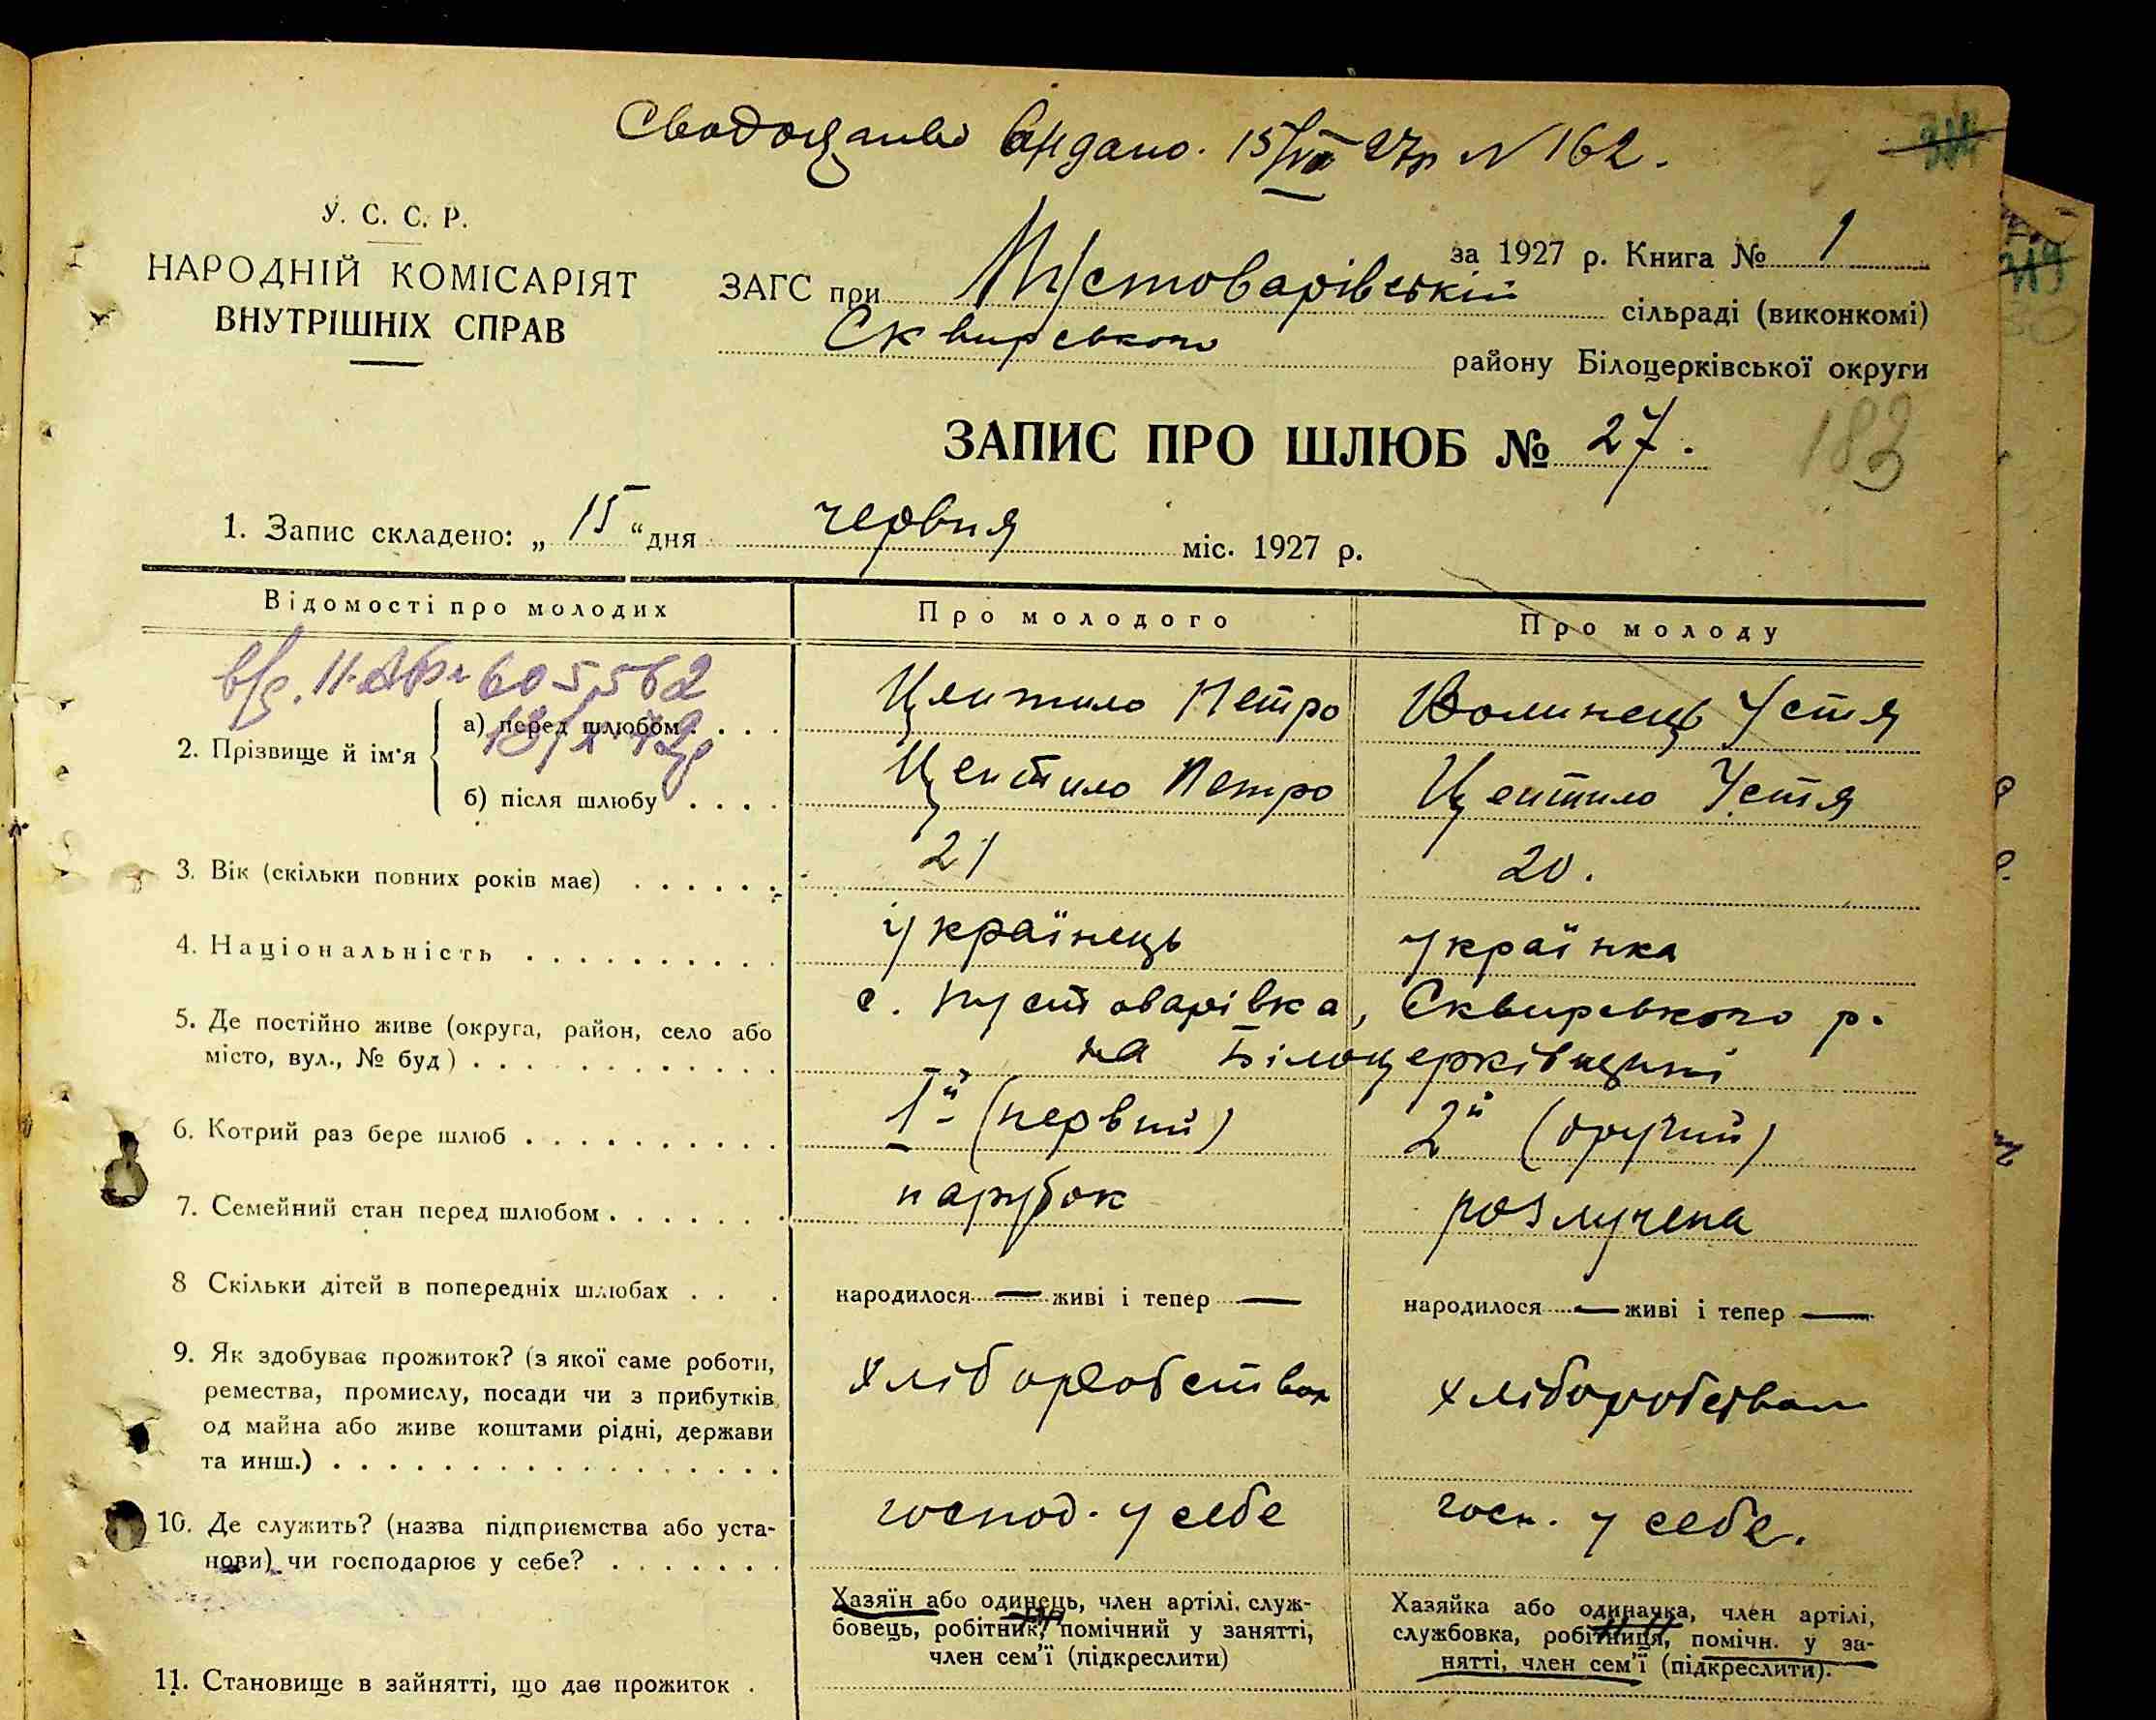 Свидоцтво видано. 15/VI 27р N 162.
У. С. С. Р.
НАРОДНІЙ КОМІСАРІЯТ
ВНУТРІШНІХ СПРАВ
за 1927 р. Книга № 1
ЗАГС при Пустоварівській сільраді (виконкомі)
Сквирського району Білоцерківської округи
ЗАПИС ПРО ШЛЮБ № 27.
183
1. Запис складено: „ 15 “ дня червня міс. 1927 р.
Відомості про молодих Про молодого Про молоду
605562
2. Прізвище й ім'я
а) перед шлюбом . . . . Центило Петро Волинець Устя
б) після шлюбу . . . . Центило Петро Центило Устя
3. Вік (скільки повних років має) . . . . . . 21 20.
4. Національність . . . . . . . . . . українець українка
5. Де постійно живе (округа, район, село або с. Пустоварівка, Сквирського р.
місто, вул., № буд) . . . . . . . . . . . . на Білоцерківщині
6. Котрий раз бере шлюб . . . . . . . . . . 1й (первий) 2й (другий)
7. Семейний стан перед шлюбом . . . . . . . парубок розлучена
8 Скільки дітей в попередніх шлюбах . . . народилося — живі і тепер — народилося — живі і тепер —
9. Як здобуває прожиток? (з якої саме роботи,
ремества, промислу, посади чи з прибутків хліборобством хліборобством
од майна або живе коштами рідні, держави
та инш.) . . . . . . . . . . . . . . . . . .
10. Де служить? (назва підприємства або уста- господ. у себе госп. у себе.
нови) чи господарює у себе? . . . . . . .
Хазяїн або одинець, член артілі, служ- Хазяйка або одиначка, член артілі,
бовець, робітник, помічний у занятті, службовка, робітниця, помічн. у за-
член сем'ї (підкреслити) нятті, член сем'ї (підкреслити).
11. Становище в зайнятті, що дає прожиток .